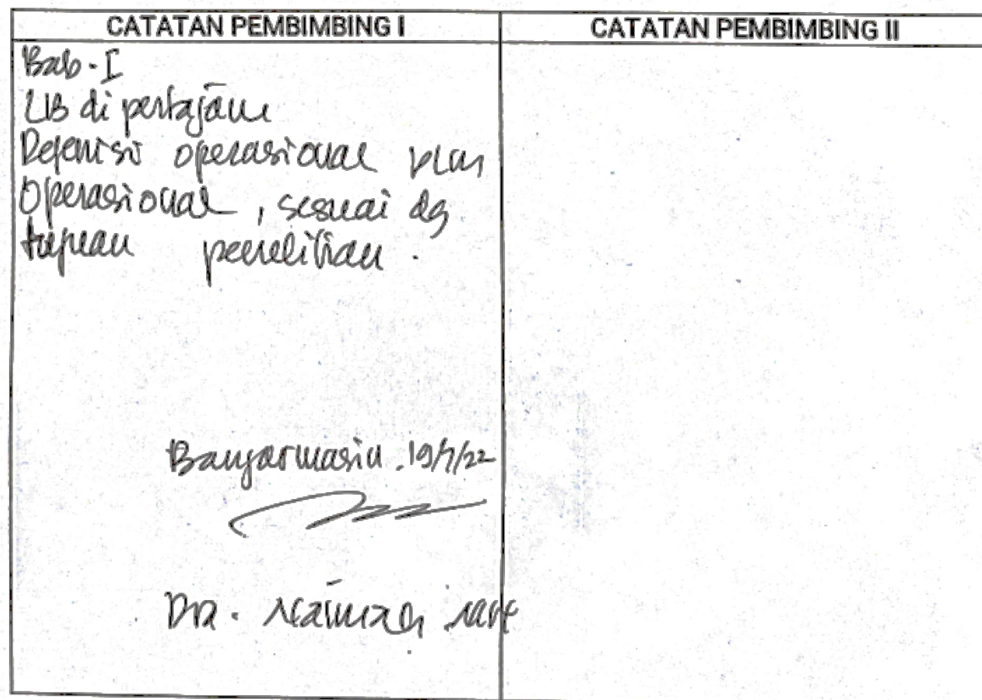 CATATAN PEMBIMBING I
CATATAN PEMBIMBING II
Bab - I
LB di pertajam
Defenisi operasional blm
Operasional, sesuai dg
tujuan penelitian.
Banjarmasin. 19/7/22